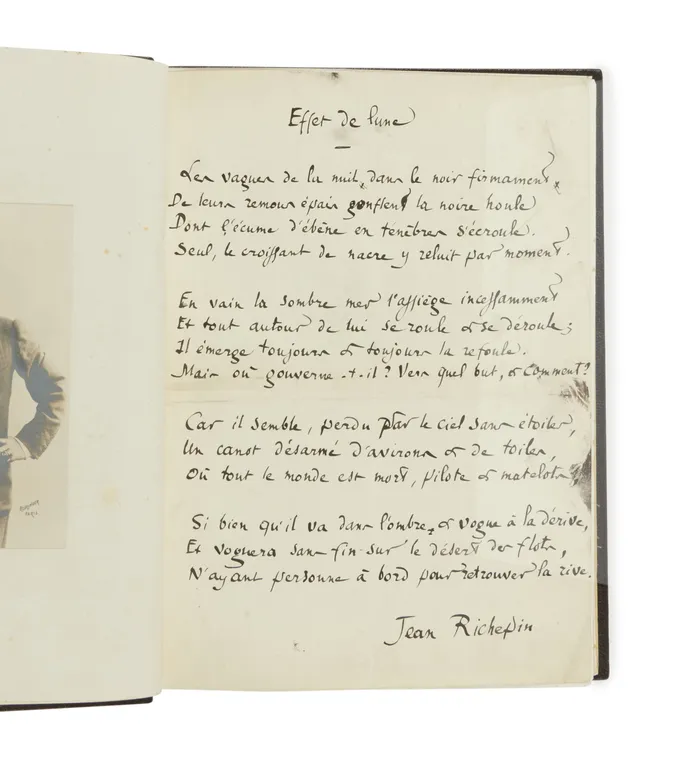 Effet de lune
Les vagues de la nuit, dans le noir firmament,
De leurs remous épais gonflent la noire houle
Dont l'écume d'ébène en ténèbres s'écroule.
Seul, le croissant de nacre y reluit par moment.
En vain la sombre mer l'assiège incessamment
Et tout autour de lui se roule et se déroule ;
Il émerge toujours et toujours la refoule.
Mais où gouverne-t-il ? Vers quel but, et comment ?
Car il semble, perdu par le ciel sans étoiles,
Un canot désarmé d'avirons et de toiles,
Où tout le monde est mort, pilote et matelots,
Si bien qu'il va dans l'ombre, et vogue à la dérive,
Et voguera sans fin sur le désert des flots,
N'ayant personne à bord pour retrouver la rive.
Jean Richepin
PARIS